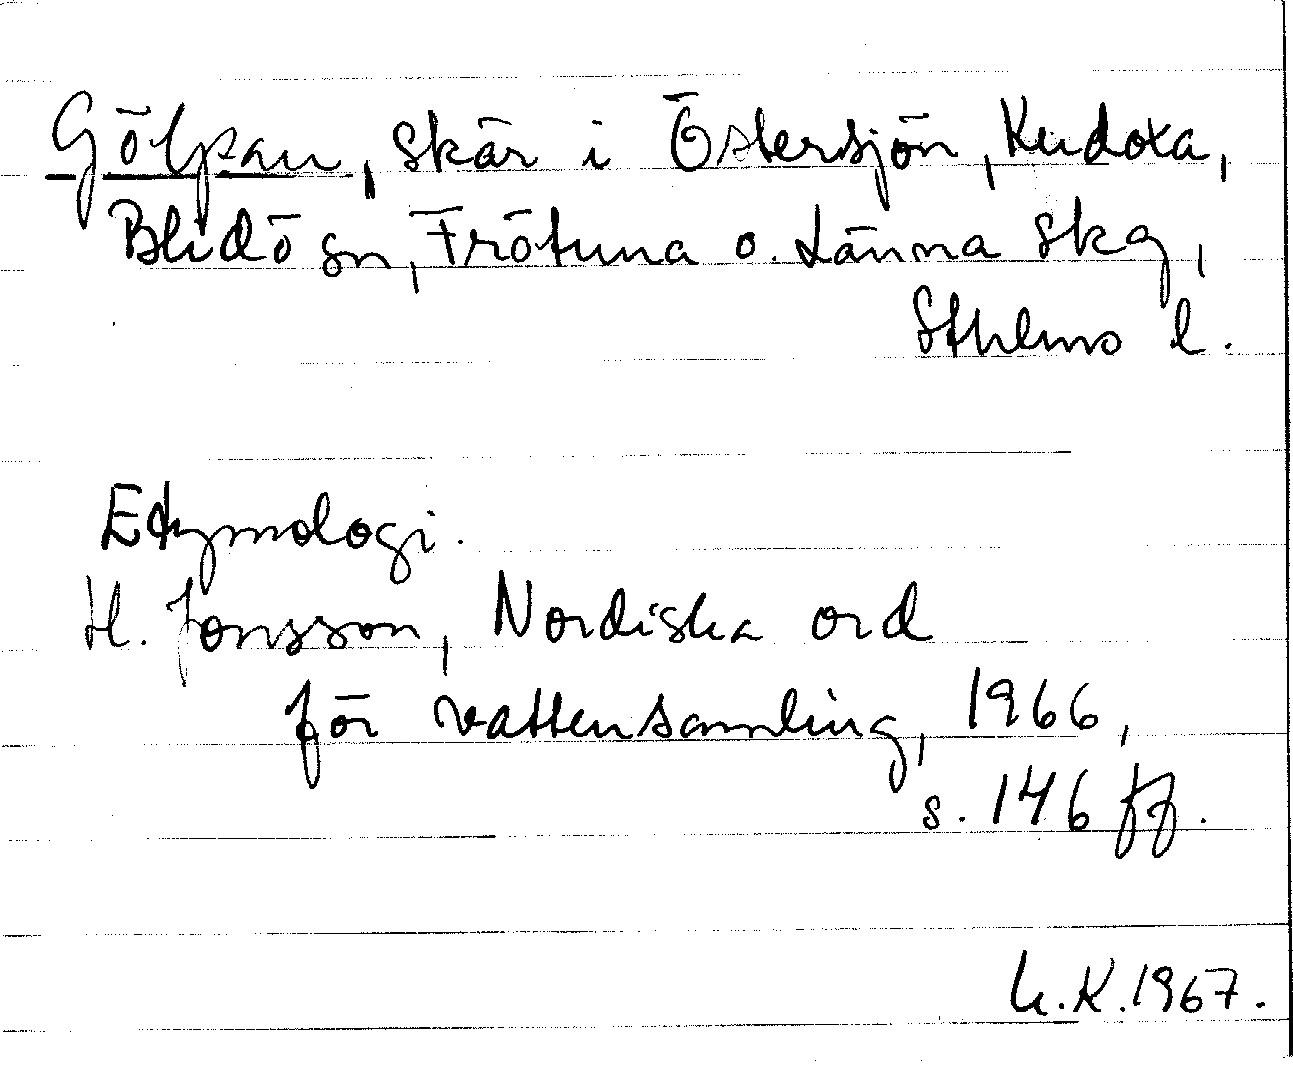 Gölpan, skär i Östersjön, Kudoxa,
Blidö sn, Frötuna o. Länna skg,
Sthlms l.
Etymologi.
H. Jonsson, Nordiska ord
för vattensamling, 1966,
s. 146 ff.
K. 1967.